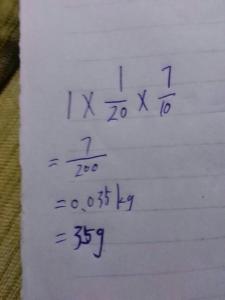 1 × 1/20 × 7/10
= 7/200
= 0.035kg
= 35g